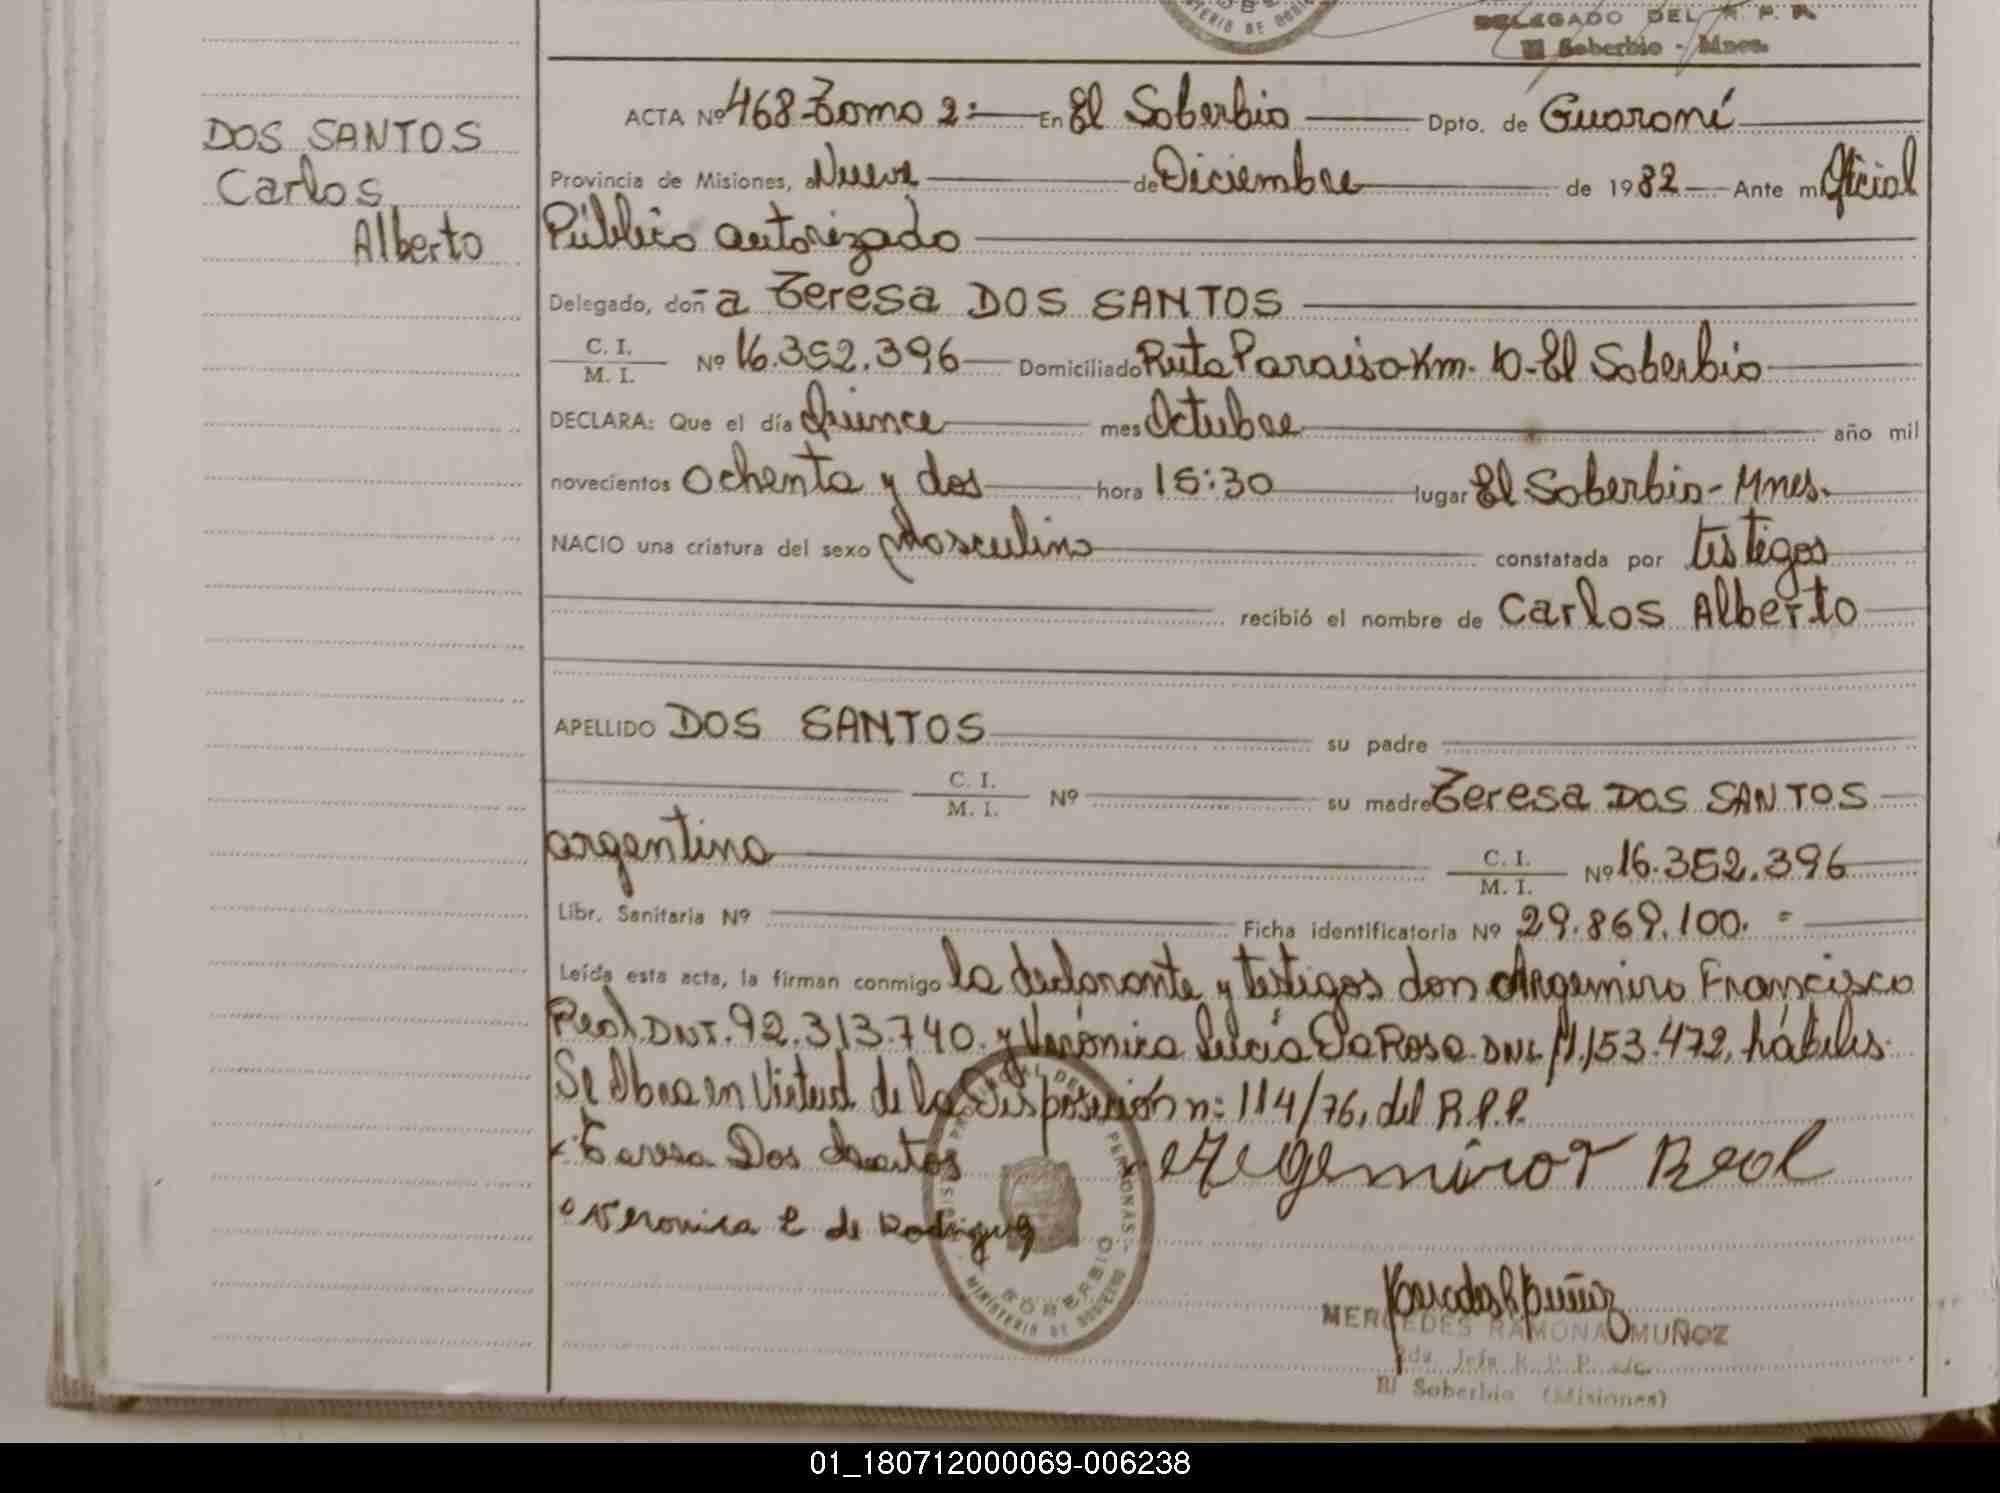 MINISTERIO DE GOBIERNO
DELEGADO DEL R. P. P.
El Soberbio - Mnes.
DOS SANTOS
Carlos
Alberto
ACTA Nº 468 - Tomo 2: En El Soberbio Dpto. de Guaraní
Provincia de Misiones, a Nueve de Diciembre de 1982 Ante mí Oficial
Público autorizado
Delegado, doña Teresa DOS SANTOS
C. I.
M. I.
Nº 16.352.396 Domiciliado Ruta Paraiso Km. 10 - El Soberbio
DECLARA: Que el día Quince mes Octubre año mil
novecientos ochenta y dos hora 15:30 lugar El Soberbio - Mnes.
NACIO una criatura del sexo Masculino constatada por testigos
recibió el nombre de Carlos Alberto
APELLIDO DOS SANTOS su padre
C. I.
M. I.
Nº su madre Teresa DOS SANTOS
argentina C. I.
M. I.
Nº 16.352.396
Libr. Sanitaria Nº Ficha identificatoria Nº 29.869.100. =
Leída esta acta, la firman conmigo la declarante y testigos don Argemiro Francisco
Real DNI. 92.313.740. y Verónica Lucía Da Rosa DNI. 11.153.472, hábiles.
Se Obra en Virtud de la Disposición n: 114/76, del R.P.P.
Teresa Dos Santos
Argemiro F Real
Veronica L de Rodriguez
PERSONAS
SOBERBIO
MINISTERIO DE GOBIERNO
MERCEDES RAMONA MUÑOZ
El Soberbio (Misiones)
01_180712000069-006238